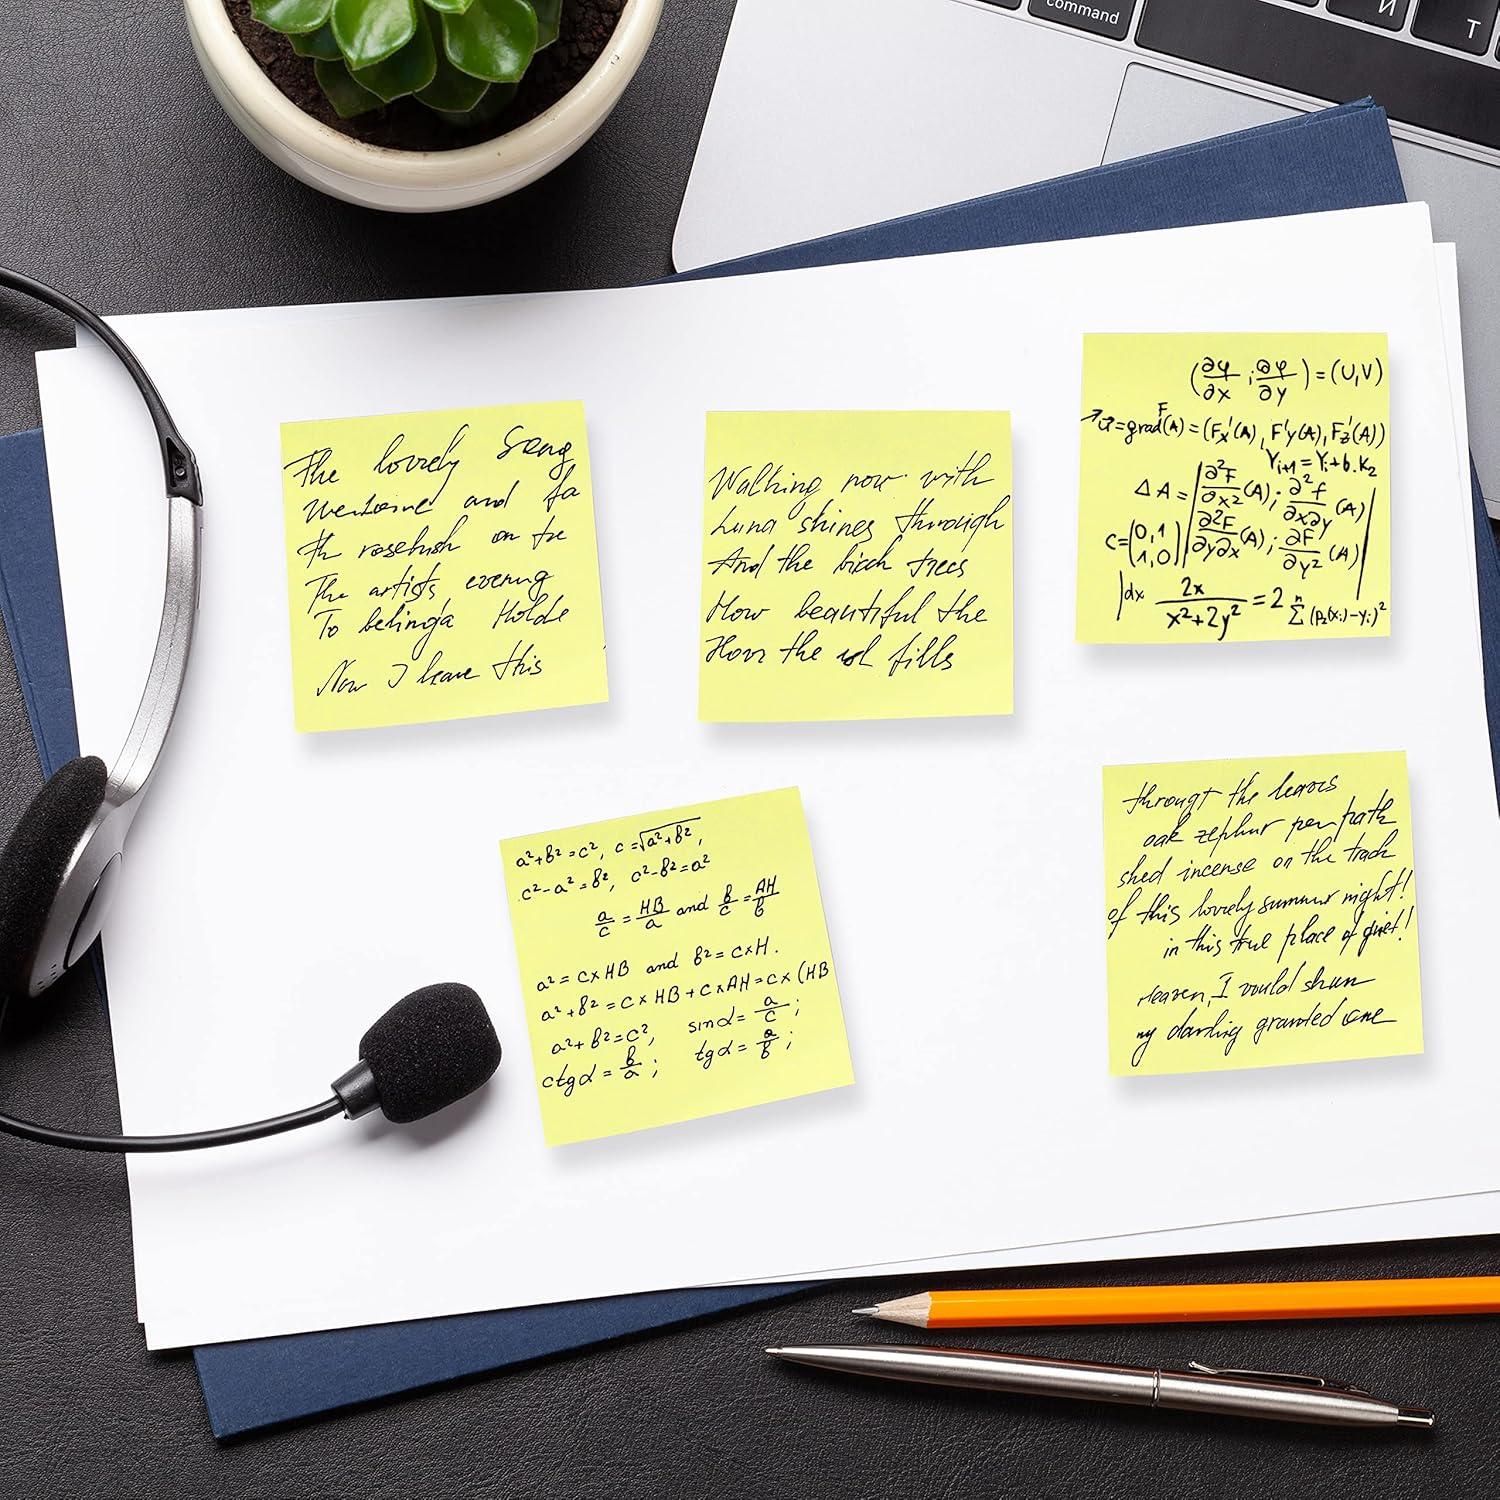 command
И
Т
The lovely Song
and
rosebush on
The artists evening
To
Now I leave this
Walking now with
Luna shines through
And the birch trees
How beautiful the
the fills
(∂φ/∂x ; ∂φ/∂y) = (U,V)
=grad(A) = (Fx'(A), F'y(A), Fz'(A))
Yi+1 = Yi+b.K2
ΔA = |∂²F/∂x² (A); ∂²f/∂x∂y (A)
C=(0,1 1,0) ∂²F/∂y∂x (A); ∂F/∂y² (A)|
dx 2x/x²+2y² = 2 Σ n (p2(xi)-yi)²
a²+b²=c², c=√a²+b²,
c²-a²=b², c²-b²=a²
a/c = HB/a and b/c = AH/b
a²=c×HB and b²=c×H.
a²+b²=c×HB+c×AH=c×(HB
a²+b²=c², sinα= a/c ;
ctgα= b/a ; tgα= a/b ;
the leaves
oak path
shed incense on the track
of this lovely summer night!
in this true place of quiet!
Heaven, I would
my darling granted one